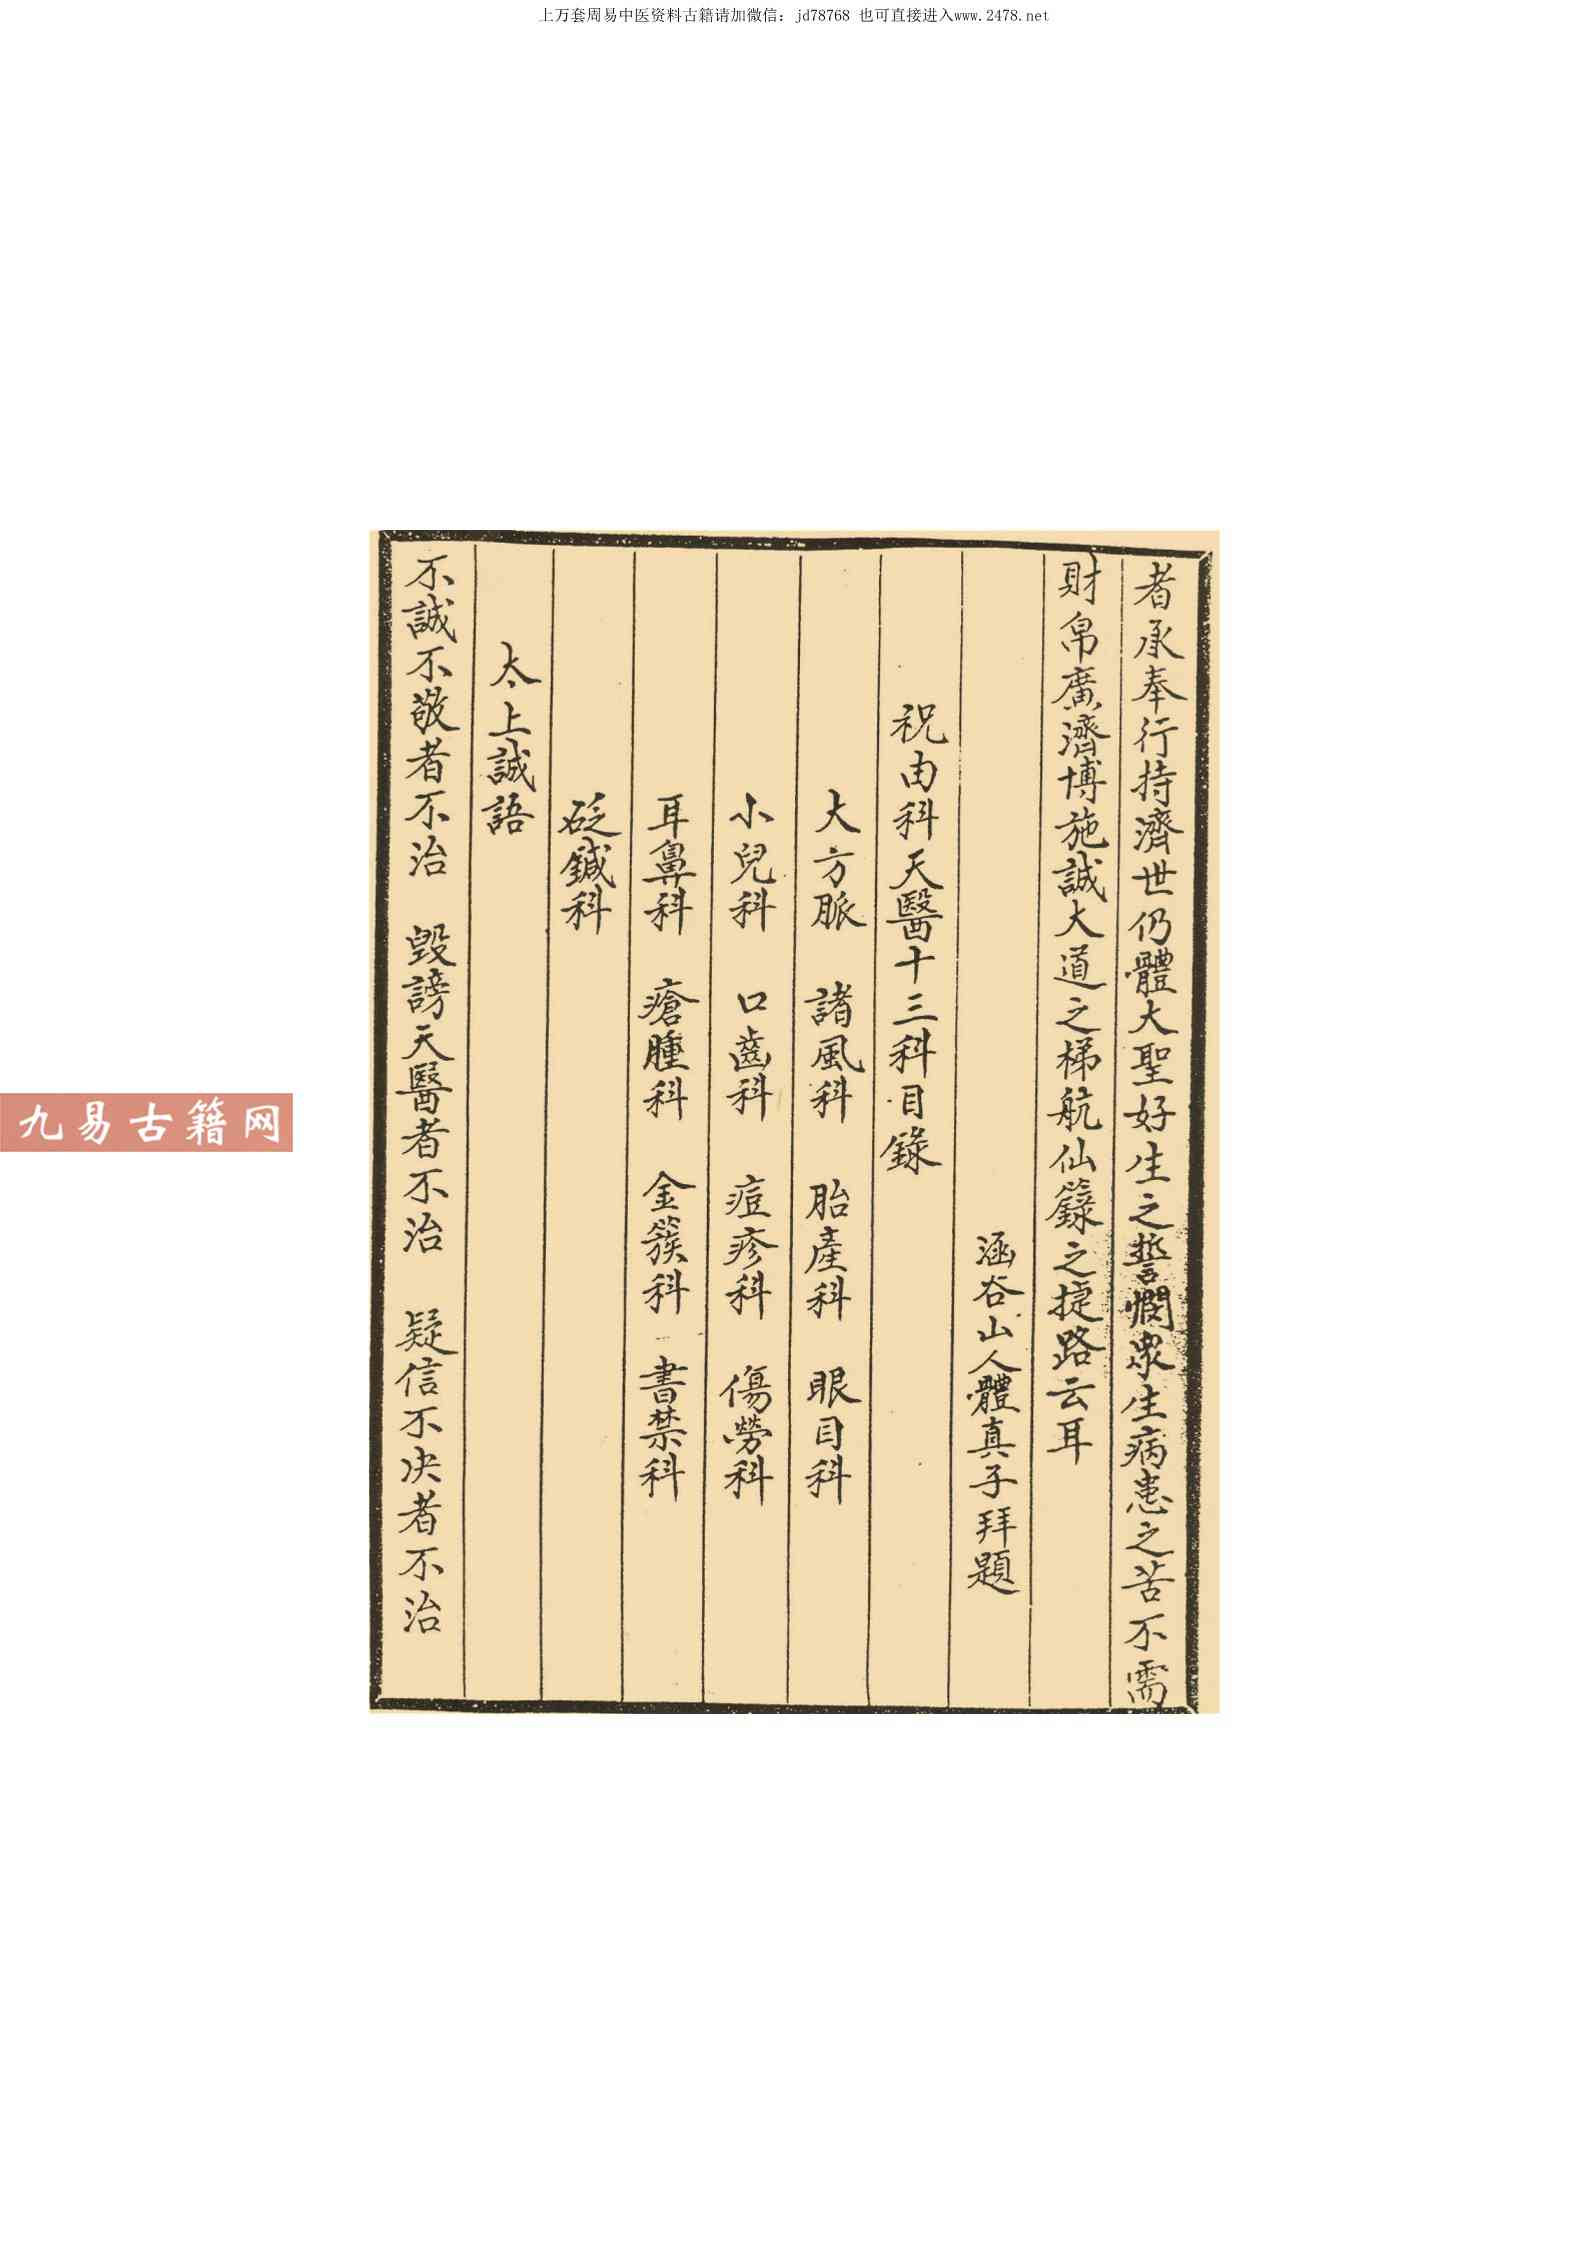 上万套周易中医资料古籍请加微信：jd78768 也可直接进入www.2478.net
者承奉行持濟世仍體大聖好生之誓憫衆生病患之苦不需
財帛廣濟博施誠大道之梯航仙籙之捷路云耳
涵谷山人體真子拜題
祝由科天醫十三科目錄
大方脈 諸風科 胎產科 眼目科
小兒科 口齒科 痘疹科 傷勞科
耳鼻科 瘡腫科 金簇科 書禁科
砭鍼科
太上誠語
不誠不敬者不治 毀謗天醫者不治 疑信不决者不治
九易古籍网